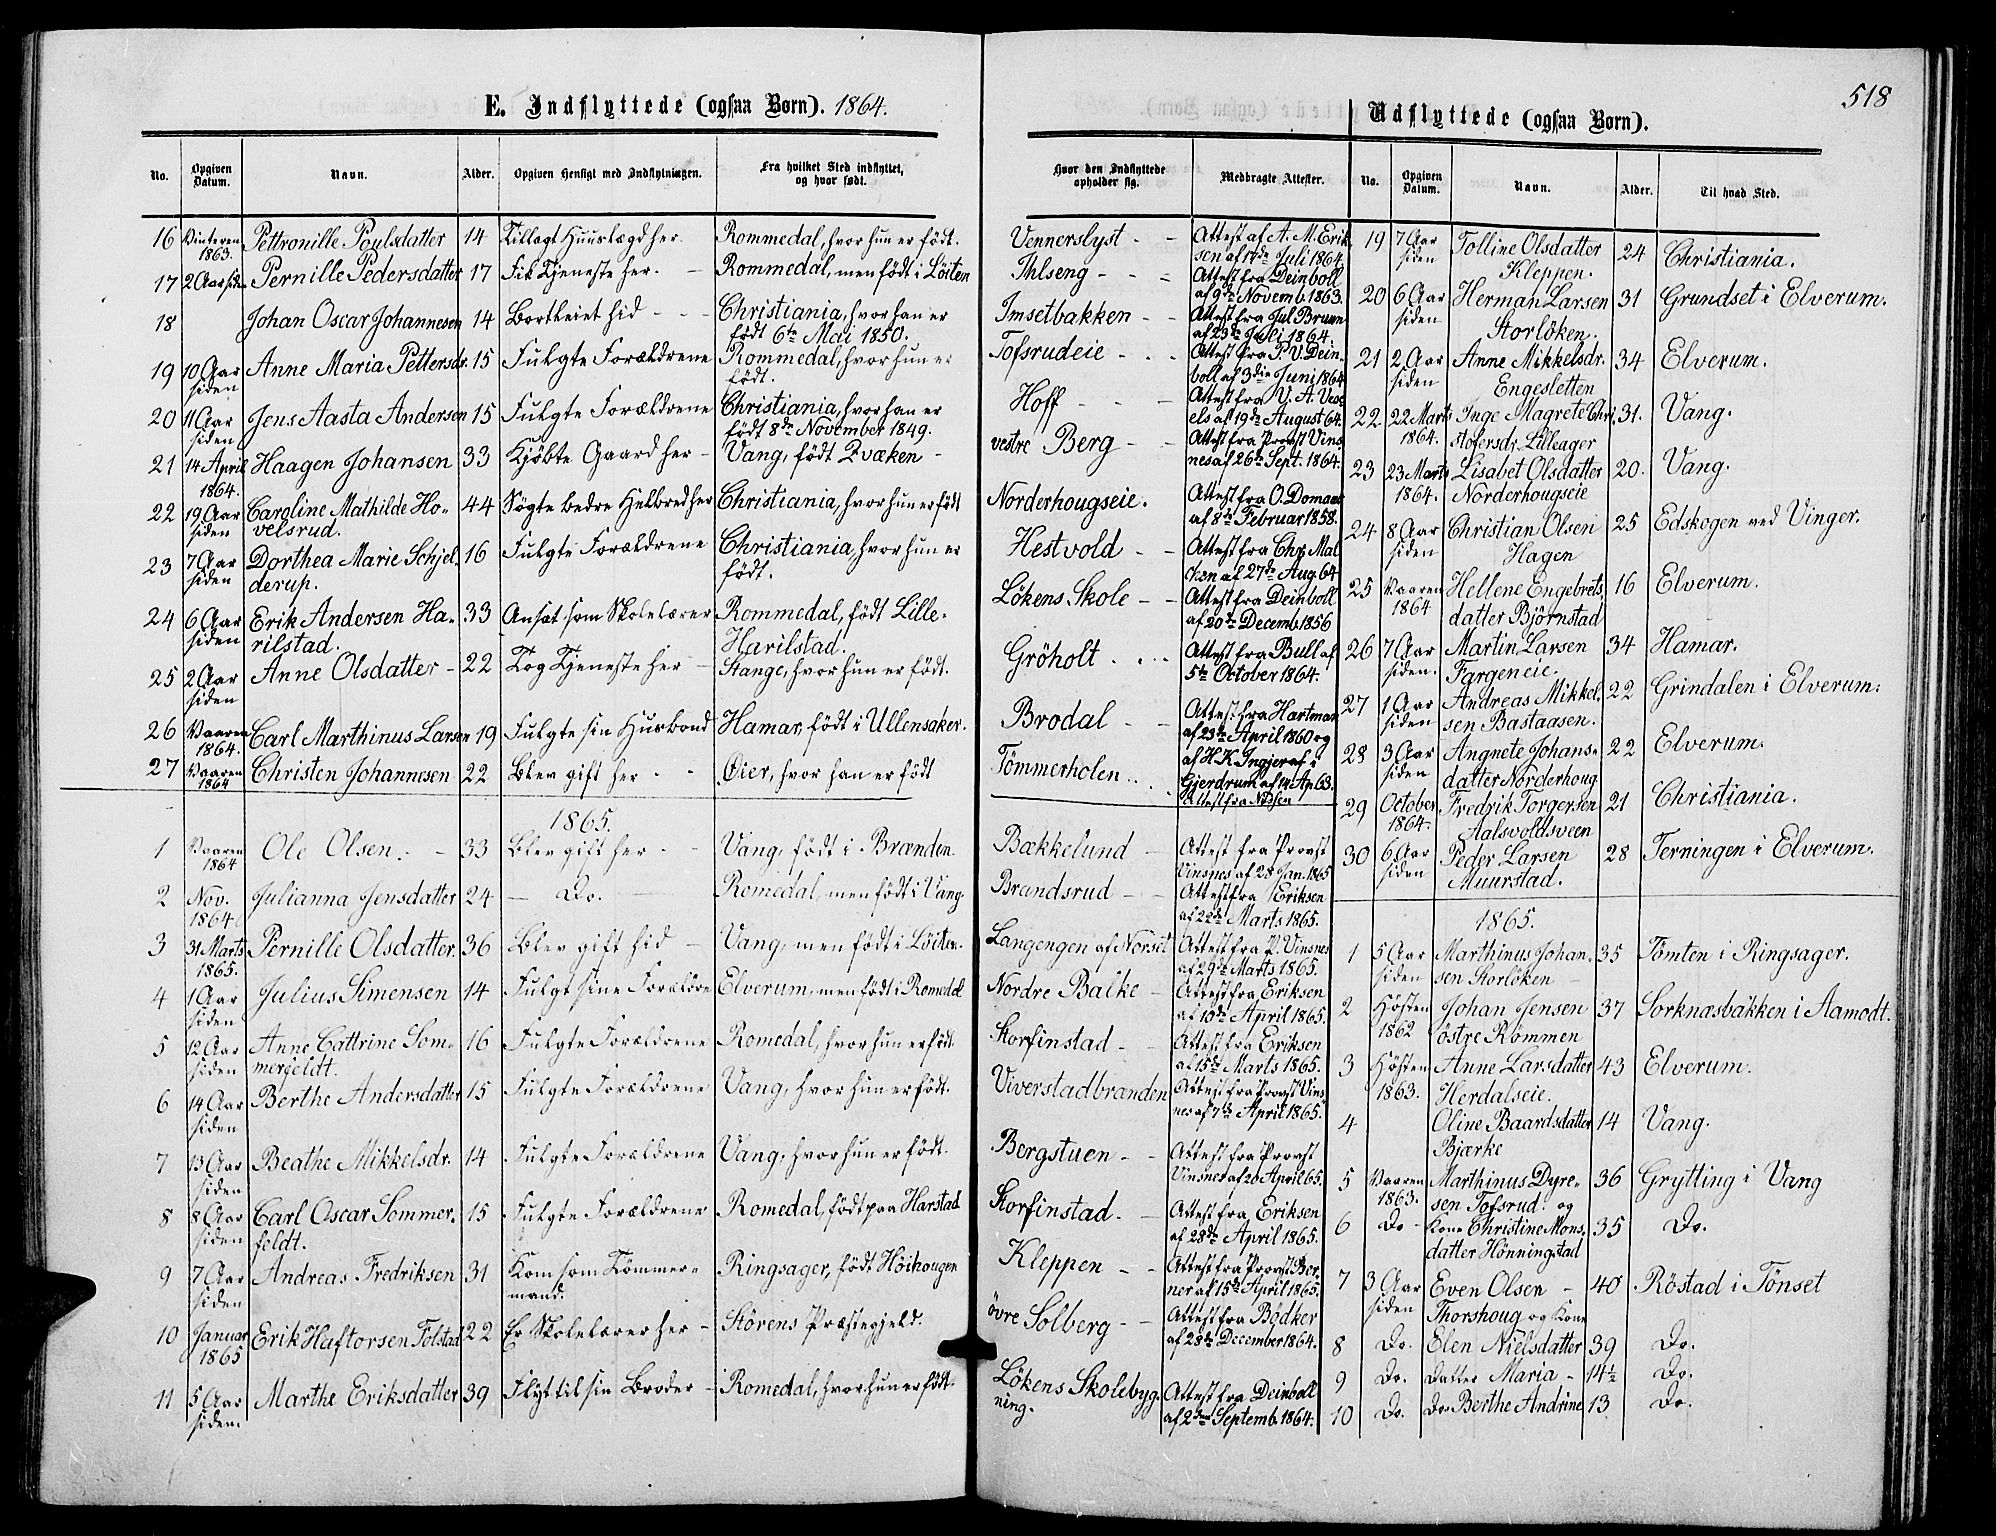 518
E. Indflyttede (ogsaa Børn). 1864.
No. | Opgiven Datum. | Navn. | Alder. | Opgiven Hensigt med Indflytningen. | Fra hvilket Sted indflyttet, og hvor født.
16 Vinteren 1863. Pettronille Poulsdatter 14 Tillagt Huuslægd her. Rommedal, hvor hun er født.
17 2 Aar siden Pernille Pedersdatter 17 Fik Tjeneste her. — Rommedal, men født i Löiten
18 Johan Oscar Johannesen 14 Bortleiet hid - - - Christiania, hvor han er født 6te Mai 1850.
19 10 Aar siden Anne Maria Pettersdr. 15 Fulgte Forældrene Rommedal, hvor hun er født.
20 11 Aar siden Jens Aasta Andersen 15 Fulgte Forældrene Christiania, hvor han er født 8de November 1849.
21 14 April 1864. Haagen Johansen 33 Kjöbte Gaard her - Vang, født Qvæken -
22 19 Aar siden Caroline Mathilde Hovelsrud. 44 Søgte bedre Helbred her Christiania, hvor hun er født
23 7 Aar siden Dorthea Marie Schjelderup. 16 Fulgte Forældrene Christiania, hvor hun er født.
24 6 Aar siden Erik Andersen Harilstad. 33 Ansat som Skolelærer Rommedal, født Lille-Harilstad.
25 2 Aar siden Anne Olsdatter - 22 Tog Tjeneste her - Stange, hvor hun er født.
26 Vaaren 1864. Carl Marthinus Larsen 19 Fulgte sin Husbond Hamar, født i Ullensaker.
27 Vaaren 1864 Christen Johannesen 22 Blev gift her - - Øier, hvor han er født
1865.
1 Vaaren 1864 Ole Olsen. - 33 Blev gift her - - Vang, født i Brænden
2 Nov. 1864. Julianna Jensdatter 24 — Do. — Romedal, men født i Vang.
3 31 Marts 1865. Pernille Olsdatter. 36 Blev gift hid - Vang, men født i Löiten.
4 1 Aar siden Julius Simensen 14 Fulgt sine Forældre Elverum, men født i Romedal
5 12 Aar siden Anne Cattrine Sommergeldt. 16 Fulgte Forældrene Romedal, hvor hun er født
6 14 Aar siden Berthe Andersdatter 15 Fulgte Forældrene Vang, hvor hun er født.
7 13 Aar siden Beathe Mikkelsdr. 14 Fulgte Forældrene Vang, hvor hun er født.
8 8 Aar siden Carl Oscar Sommerfeldt. 15 Fulgte Forældrene Romedal, født paa Harstad
9 7 Aar siden Andreas Fredriksen 31 Kom som Tömmermand. Ringsager, født Höihougen
10 Januar 1865 Erik Haftorsen Folstad 22 Er Skolelærer her - Störens Præstegjeld.
11 5 Aar siden. Marthe Eriksdatter 39 Flyt til sin Broder - Romedal, hvor hun er født.
Hvor den Indflyttede opholder sig. | Medbragte Attester.
Vennerslyst - - Attest af A. M. Eriksen af 17de Juli 1864.
Ihlseng - - = Attest fra Deinboll af 9de Novemb. 1863.
Imsetbakken - - Attest fra Jul. Bruun af 23de Juli 1864.
Tofsrudeie - - - Attest fra P. V. Deinboll af 3die Juni 1864
Hoff - - - Attest fra V. A. Vexels af 19de August 64.
vestre Berg - - Attest fra Provst Vinsnes af 26de Sept. 1864.
Norderhougseie. Attest fra O. Domaas af 8de Februar 1858.
Hestvold - - Attest fra Chr. Malchen af 27de Aug. 64
Lökens Skole - - Attest fra Deinboll af 20de Decemb. 1856
Gröholt . ... Attest fra Bull af 5te October 1864.
Brodal - - Attest fra Hartman af 23de April 1860 og af H. K. Ingjer af i Gjerdrum af 14 Ap. 63.
Tömmerholen.. Attest fra Nissen
Bækkelund - Attest fra Provst Vinsnes af 28 Jan. 1865
Brandsrud - - Attest fra Eriksen af 22de Marts 1865.
Langengen af Norset Attest fra P. Vinsnes af 29de Marts 1865.
Nordre Balke - Attest fra Eriksen af 10de April 1865.
Storfinstad - - Attest fra Eriksen af 15de Marts 1865.
Viverstadbranden Attest fra Provst Vinsnes af 7de April 1865.
Bergstuen - - Attest fra Provst Vinsnes af 20 April 65.
Storfinstad. - Attest fra Eriksen af 28de April 1865.
Kleppen - - Attest fra Provst Berner af 15de April 1865.
övre Solberg - - Attest fra Bödker af 28de December 1864.
Lökens Skolebygning. Attest fra Deinboll af 2den Septemb. 1864.
Udflyttede (ogsaa Børn).
No. | Opgiven Datum. | Navn. | Alder. | Til hvad Sted.
19 7 Aar siden Tolline Olsdatter Kleppen. 24 Christiania.
20 6 Aar siden Herman Larsen Storlöken. 31 Grundset i Elverum.
21 2 Aar siden Anne Mikkelsdr. Engesletten 34 Elverum.
22 22 Marts 1864. Inge Magrete Christofersdr. Lilleager 31. Vang.
23 23 Marts 1864. Lisabet Olsdatter Norderhougseie 20. Vang.
24 8 Aar siden Christian Olsen Hagen 25 Edskogen ved Vinger.
25 Vaaren 1864 Hellene Engebretsdatter Björnstad 16 Elverum.
26 7 Aar siden. Martin Larsen Fargeneie. 34 Hamar.
27 1 Aar siden Andreas Mikkelsen Bastaasen. 22 Grindalen i Elverum.
28 3 Aar siden Angnete Johansdatter Norderhoug 22 Elverum.
29 October 1864. Fredrik Torgersen Aalsvoldsveen 21 Christiania.
30 6 Aar siden Peder Larsen Muurstad. 28 Terningen i Elverum.
1865.
1 5 Aar siden Marthinus Johansen Storlöken 35 Tömten i Ringsager.
2 Hösten 1862 Johan Jensen östre Rommen 37 Sorknæsbakken i Aamodt.
3 Hösten 1863. Anne Larsdatter Herdalseie. 43 Elverum.
4 Oline Baardsdatter Bjærke 14 Vang.
5 Vaaren 1863. Marthinus Dyresen Tofsrud. og 36 Grytting i Vang
6 Do - Kone Christine Monsdatter Hönningstad 35 Do.
7 3 Aar siden Even Olsen - Thorshoug og Kone 40 Röstad i Tönset
8 Do. Elen Nielsdatter 39 Do.
9 Do. Datter Maria - 14½ Do.
10 Do. Do. Berthe Andrine 13 Do.